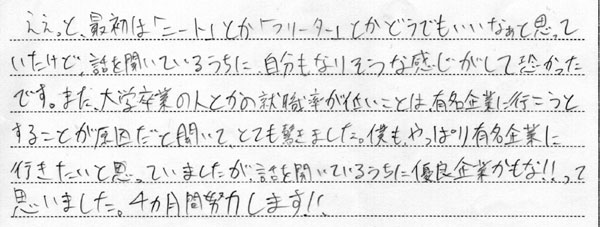 ええっと、最初は「ニート」とか「フリーター」とかどうでもいいなぁと思って
いたけど、話を聞いているうちに、自分もなりそうな感じがして恐かった
です。また、大学卒業の人とかの就職率が低いことは、有名企業に行こうと
することが原因だと聞いて、とても驚きました。僕も、やっぱり有名企業に
行きたいと思っていましたが、話を聞いているうちに優良企業かもな!!って
思いました。4カ月間努力します!!